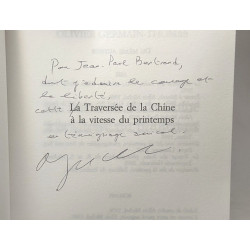 Pour Jean-Paul Bertrand,
dont j'admire le courage et
la liberté,
cette La Traversée de la Chine
à la vitesse du printemps
en témoignage amical.